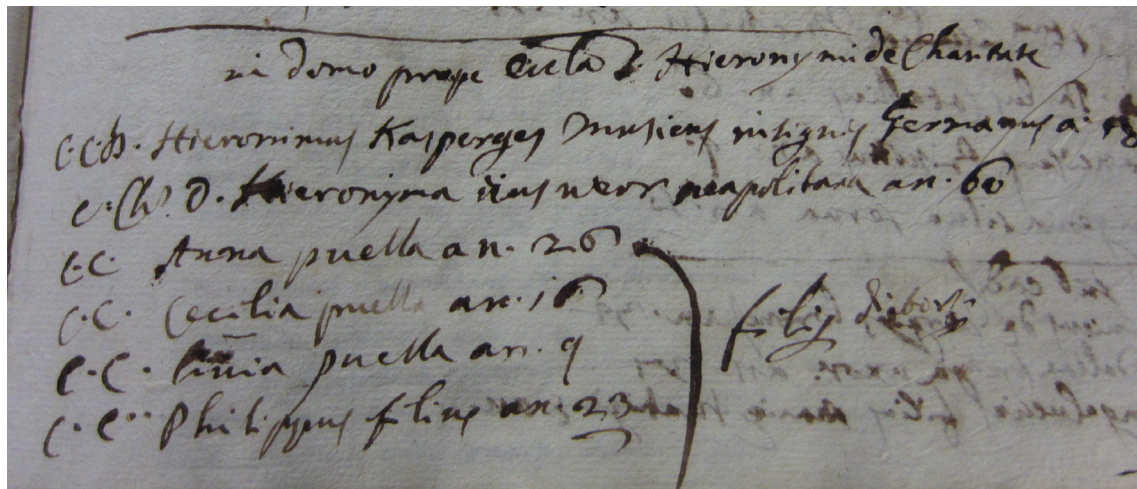 in domo prope Eccla S. Hieronymi de Charitate
C.Ch. Hieronimus Kasperges Musicus insignis Germanus a.
C.Ch. D. Hieronyma eius uxor neapolitana an. 60
C.C. Anna puella an. 26
C.C. Cecilia puella an. 16
C.C. Livia puella an. 9
C.C. Philippus filius an. 23
filij